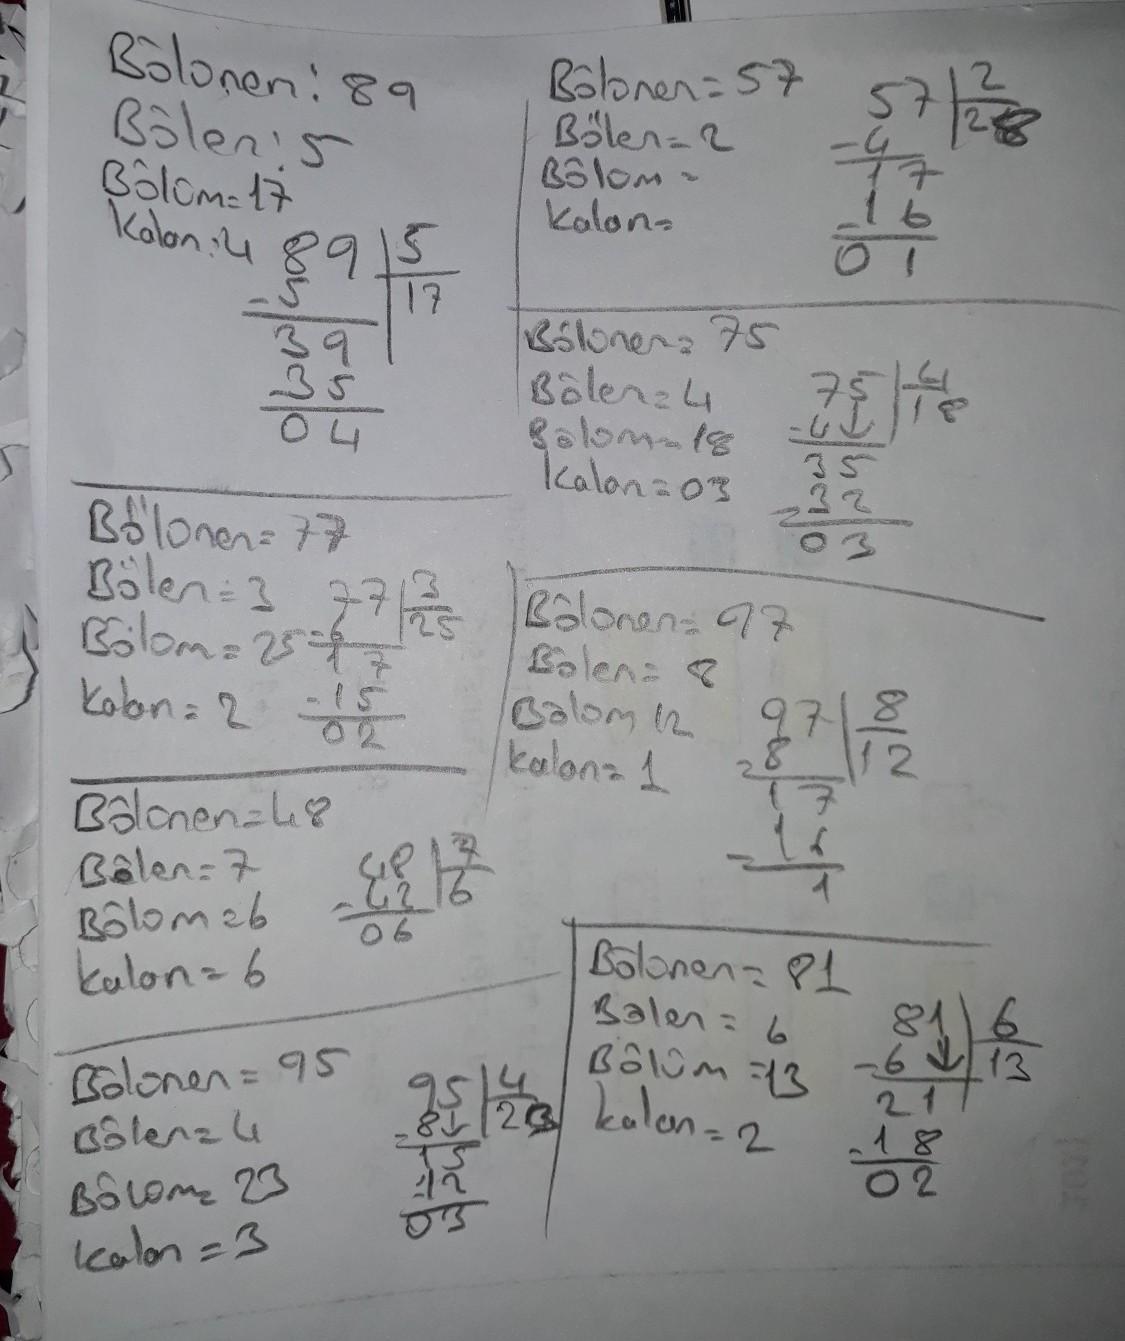 Bölünen: 89
Bölen: 5
Bölüm=17
Kalan:4
89 5
-5 17
39
-35
04
Bölünen=57
Bölen=2
Bölüm=
Kalan=
57 2
-4 28
17
-16
01
Bölünen=75
Bölen=4
Bölüm=18
Kalan=03
75 4
-4↓ 18
35
-32
03
Bölünen=77
Bölen=3
Bölüm=25
Kalan=2
77 3
-6 25
17
-15
02
Bölünen=97
Bölen=8
Bölüm 12
Kalan=1
97 8
-8 12
17
-16
1
Bölünen=48
Bölen=7
Bölüm=6
Kalan=6
48 7
-42 6
06
Bölünen=81
Bölen=6
Bölüm=13
Kalan=2
81 6
-6↓ 13
21
-18
02
Bölünen=95
Bölen=4
Bölüm=23
Kalan=3
95 4
-8↓ 23
15
-12
03